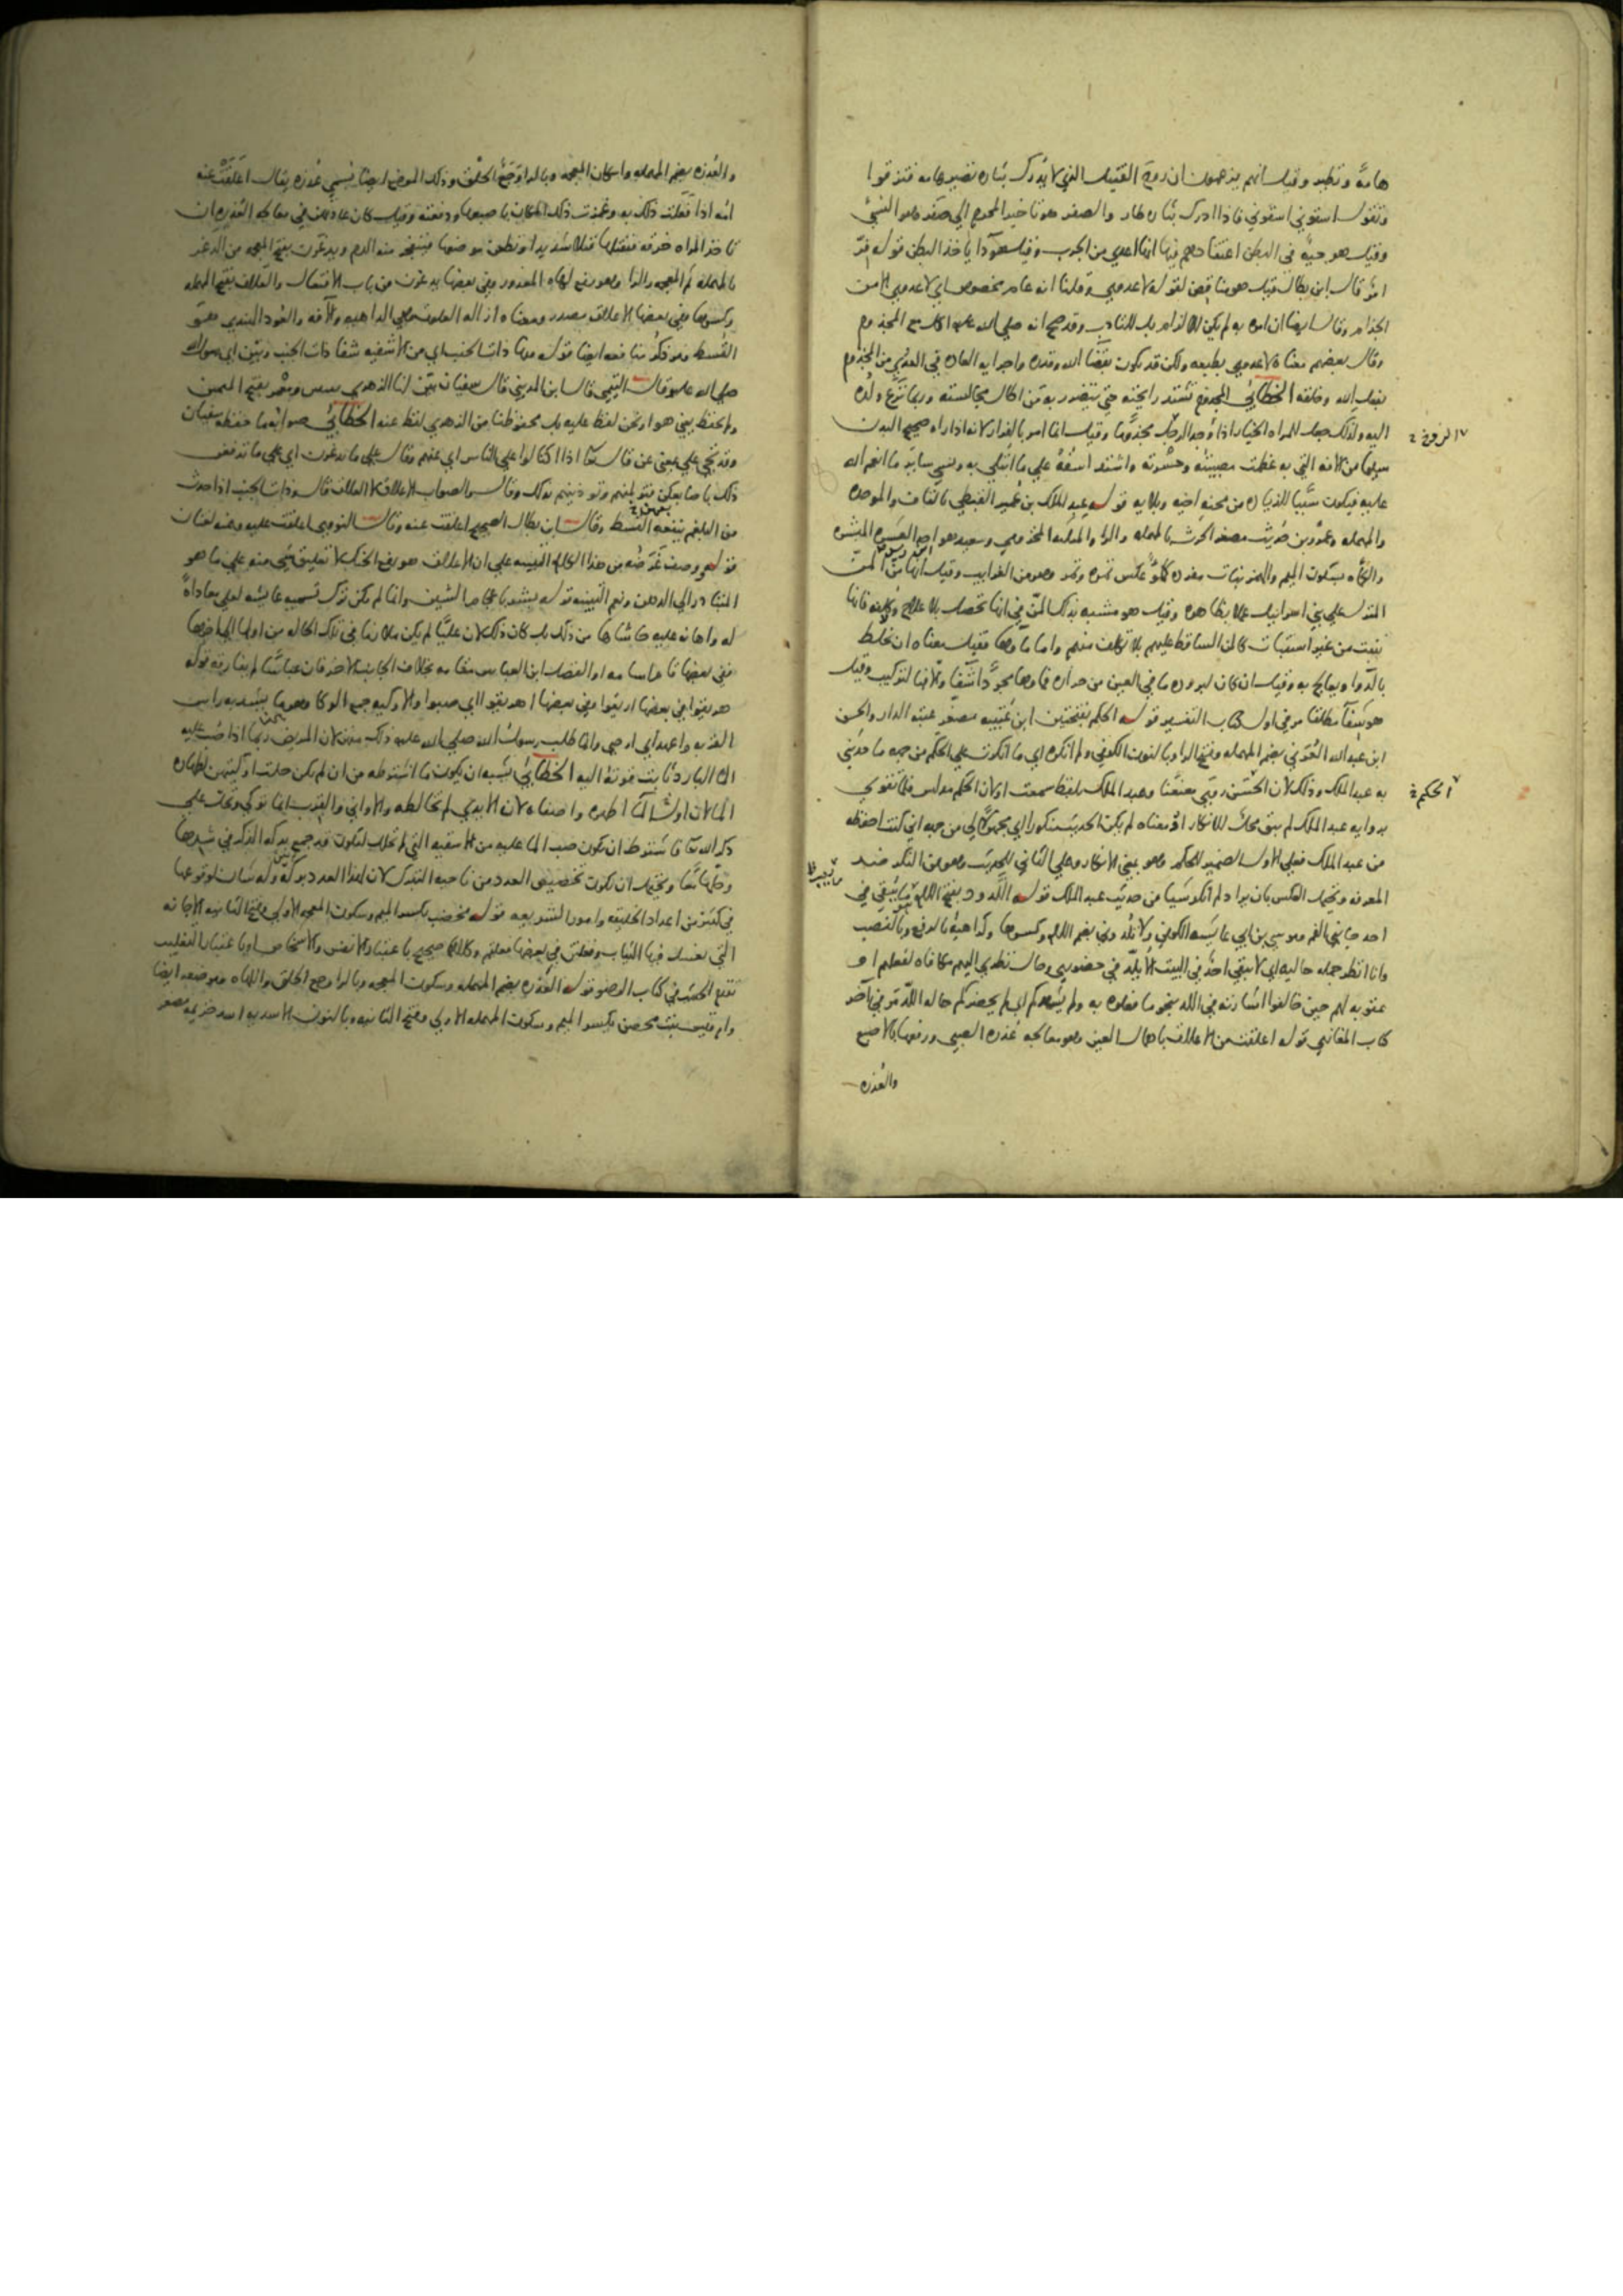 هامة وتطير وقيل انهم يزعمون ان روح القتيل الذي لا يدرك بثاره تصير هامه فتزقوا
وتقول اسقوني اسقوني فاذا ادرك بثاره طار والصفر هو تاخير المحرم الي صفر وهو النسئ
وقيل هو حية في البطن اعتقادهم فيها انها اعدي من الجرب وقيل هو داء ياخذ البطن قوله فر
امر قال ابن بطال قيل هو يناقض لقوله لا عدوي وقلنا انه عام مخصوص اي لا عدوي الا من
الجذام وقال ايضا ان امره به لم يكن للالزام بل للندب وقد صح انه صلي الله عليه اكل مع المجذوم
وقال بعضهم معناه لا عدوي بطبعه ولكن قد يكون بقضا الله وقدره واجرايه العاده في العدوي من المجذوم
بفعل الله وخلقه الخطابي المجذوم تشتد رايحته حتي يتضرر به من اطال مجالسته وربما نزع ولده
اليه ولذلك جعل للمراه الخيار اذا وجد الرجل مجذوما وقيل انما امر بالفرار لانه اذا راه صحيح البدن
الزوج
سليما من الافه التي به عظمت مصيبته وحسرته واشتد اسفه علي ما ابتلي به ونسي ساير ما انعم الله
عليه فيكون سببا للزياده من محنه اخيه وبلايه قوله عبد الملك بن عمير القبطي بالقاف والموحده
والمهمله وعمرو بن حريث مصغر الحرث بالمهمله والرا والمثلثه المخزومي وسعيد هو احد العشره المبشره
والكماه بسكون الميم والهمز نبات مفرده كمؤ عكس تمره وتمر وهو من الغرايب وقيل انها من المن
المنزل علي بني اسرائيل عملا بظاهره وقيل هو مشبه بذلك المن في انها تحصل بلا علاج ولا كلفه فانها
تنبت من غير استنبات كالمن الساقط عليهم بلا تكلف منهم واما ماوها فقيل معناه ان يخلط
بالدوا ويعالج به وقيل ان كان لبروده ما في العين من حراره فماوها مجردا شفا والا فبالتركيب وقيل
هو شفا مطلقا مر في اول كتاب التفسير قوله الحكم بفتحتين ابن عتيبه مصغر عتبه الدار والحسن
ابن عبد الله العرني بضم المهمله وفتح الرا وبالنون الكوفي ولم انكره اي ما انكرت علي الحكم من جهه ما حدثني
به عبد الملك وذلك لان الحسن روي معنعنا وعبد الملك بلفظ سمعت او لان الحكم مدلس فلما تقوي
الحكم
بروايه عبد الملك لم يبق محل للانكار او معناه لم يكن الحديث منكورا اي مجهولا لي من جهه اني كنت احفظه
من عبد الملك فعلي الاول الضمير للحكم وهو بمعني الانكار وعلي الثاني للحديث وهو من النكره ضد
المعرفه ويحتمل العكس بان يراد لم انكر شيا من حديث عبد الملك قوله اللدود بفتح اللام ما يسقي في
احد جانبي الفم وموسي بن ابي عايشه الكوفي ولا تلدوني بضم اللام وكسرها وكراهيه بالرفع وبالنصب
وانا انظر جمله حاليه اي لا يبقي احد في البيت الا يلد في حضوري وحال نظري اليهم مكافاه لفعلهم او
عقوبه لهم حين خالفوا اشارته في اللد بنحو ما فعلوه به ولم يشهدكم اي لم يحضركم حاله اللد مر في اخر
كتاب المغازي قوله اعلقت من الاعلاق باهمال العين وهو معالجه عذره الصبي ورفعها بالاصبع
والعذره
والعذره بضم المهمله واسكان المعجمه وبالرا وجع الحلق وذلك الموضع ايضا يسمي عذره يقال اعلقت عنه
امه اذا فعلت ذلك به وغمزت ذلك المكان باصبعها ودفعته وقيل كان عادتهن في معالجه العذره ان
تاخذ المراه خرقه فتفتلها فتلا شديدا وتطعن موضعها فينفجر منه الدم ويدغرن بفتح المعجمه من الدغر
بالمهمله ثم المعجمه والرا وهو رفع لهاه المعذور وفي بعضها يدغرن من باب الافتعال والعلاق بفتح المهمله
وكسرها وفي بعضها الاعلاق مصدر ومعناه ازاله العلوق وهي الداهيه والافه والعود الهندي هو
القسط مر ذكر منافعه ايضا قوله منها ذات الجنب اي من الاشفيه شفا ذات الجنب وبين اي رسول الله
صلي الله عليه وقال التيمي قال ابن المديني قال سفيان بين لنا الزهري ومعمر بفتح الميمين
ولم يحفظ يعني هو ان نحن لفظ عليه بل محفوظنا من الزهري لفظ عنه الخطابي صوابه ما حفظه سفيان
وقد يجي علي بمعني عن قال تعا اذا اكتالوا علي الناس اي عنهم وقال علي ما تدغرن اي علي ما ترفعن
ذلك باصابعكن فتولمنهم وتوذينهم بذلك وقال والصواب الاعلاق لا العلاق قال وذات الجنب اذا حدث
من البلغم ينفعه القسط وقال ابن بطال الصحيح اعلقت عنه وقال النووي اعلقت عليه وعنه لغتان
قوله ووصف غرضه من هذا الكلام التنبيه علي ان الاعلاق هو رفع الحنك لا تعليق شي منه علي ما هو
المتبادر الي الذهن ونعم التنبيه قوله بشر باعجام الشين وانما لم يكن ترك تسميه عايشه لعلي معاداه
له واهانه عليه حاشاها من ذلك بل كان ذلك لان عليا لم يكن ملازما في تلك الحاله من اولها الي اخرها
ففي بعضها قام اسامه او الفضل ابن العباس مقامه بخلاف الجانب الاخر فان عباسا لم يفارقه قوله
هريقوا في بعضها اريقوا وفي بعضها اهريقوا اي صبوا والاوكيه جمع الوكا وهو ما يشد به راس
القربه واعهد اي اوصي وانما طلب رسول الله صلي الله عليه ذلك منهن لان المريض ربما اذا صب عليه
الما البارد ثابت قوته اليه الخطابي يشبه ان يكون ما اشترطه من ان لم يكن حلت اوكيتهن لطهاره
الما لان اول الما اطهره واصفاه لان الايدي لم تخالطه والاواني والقرب انما توكي وتحل علي
ذكر الله تعا فاشترط ان يكون صب الما عليه من الاسقيه التي لم تحلل ليكون قد جمع بركه الذكر في شدها
وحلها معا ويحتمل ان يكون تخصيص العدد من ناحيه التبرك لان لهذا العدد بركه وله شان لوقوعها
في كثير من اعداد الخليقه وامور الشريعه قوله مخضب بكسر الميم وسكون المعجمه الاولي وفتح الثانيه الاجانه
التي يغسل فيها الثياب وفعلتن في بعضها فعلتم وكلاهما صحيح باعتبار الانفس والاشخاص او باعتبار التغليب
تقدم الحديث في كتاب الوضو قوله العذره بضم المهمله وسكون المعجمه وبالرا وجع الحلق واللهاه وموضعه ايضا
وام قيس بنت محصن بكسر الميم وسكون المهمله الاولي وفتح الثانيه وبالنون الاسديه اسد خزيمه